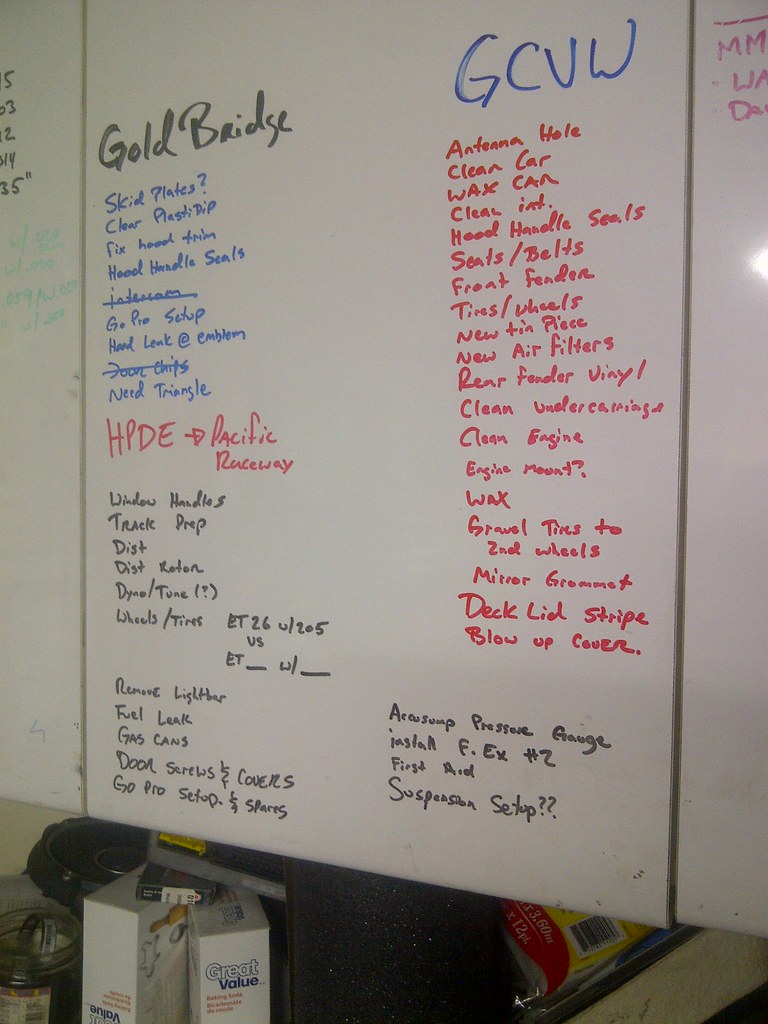 15
03
12
014
35"
w/.000
w/.000
.059/w.000
w/.000
Gold Bridge
Skid Plates?
Clear PlastiDip
Fix hood trim
Hood Handle Seals
intercom
GoPro Setup
Hard Leak @ emblem
Door Chips
Need Triangle
HPDE → Pacific
Raceway
Window Handles
Track Prep
Dist
Dist Rotor
Dyno/Tune (?)
Wheels/Tires ET 26 w/205
vs
ET__ w/__
Remove Lightbar
Fuel Leak
GAS CANS
DOOR Screws & COVERS
Go Pro Setup. & Spares
GCVW
Antenna Hole
Clean Car
WAX CAR
Clean int.
Hood Handle Seals
Seats/Belts
Front Fender
Tires/Wheels
New tin Piece
New Air Filters
Rear Fender Vinyl
Clean undercarriage
Clean Engine
Engine Mount?
WAX
Gravel Tires to
2nd wheels
Mirror Grommet
Deck Lid Stripe
Blow up COVER.
Accusump Pressure Gauge
install F. Ex #2
First Aid
Suspension Setup??
MM
- WA
Great
Value
Baking Soda
Bicarbonate
de soude
Great
Value
Baking Soda
Bicarbonate
de soude
x 3.60m
x 12pi